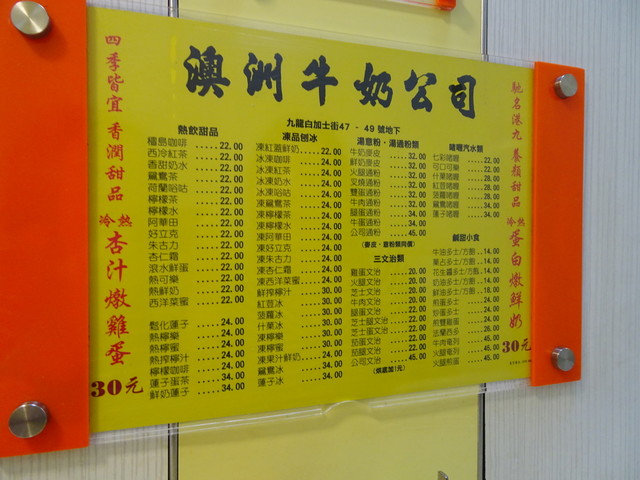 澳洲牛奶公司
九龍白加士街47 - 49 號地下
四季皆宜 香潤甜品
冷熱 杏汁燉雞蛋
30元
熱飲甜品
檀島咖啡 .....22.00
西冷紅茶 .....22.00
香甜奶水 .....22.00
鴛鴦茶 .....22.00
荷蘭哈咕 .....22.00
檸檬茶 .....22.00
檸檬水 .....22.00
阿華田 .....22.00
好立克 .....22.00
朱古力 .....22.00
杏仁霜 .....22.00
滾水鮮蛋 .....22.00
熱可樂 .....22.00
熱鮮奶 .....22.00
西洋菜蜜 .....22.00
鬆化蓮子 .....24.00
熱檸樂 .....24.00
熱檸蜜 .....24.00
熱檸檸汁 .....24.00
檸檬咖啡 .....24.00
蓮子蛋茶 .....34.00
鮮奶蓮子 .....34.00
凍品刨冰
凍紅蓮鮮奶 .....24.00
冰凍咖啡 .....24.00
冰凍紅茶 .....24.00
冰凍奶水 .....24.00
冰凍哈咕 .....24.00
凍鴛鴦茶 .....24.00
凍檸檬茶 .....24.00
凍檸檬水 .....24.00
凍阿華田 .....24.00
凍好立克 .....24.00
凍朱古力 .....24.00
凍杏仁霜 .....24.00
凍西洋菜蜜 .....24.00
鮮搾檸汁 .....30.00
紅荳冰 .....30.00
菠蘿冰 .....30.00
什果冰 .....30.00
凍檸樂 .....30.00
凍檸蜜 .....30.00
凍果汁鮮奶 .....34.00
鴛鴦冰 .....34.00
蓮子冰 .....34.00
湯意粉・湯通粉類
牛奶麥皮 .....32.00
鮮奶麥皮 .....32.00
火腿通粉 .....32.00
叉燒通粉 .....32.00
雙蛋通粉 .....32.00
牛肉通粉 .....34.00
腿蛋通粉 .....34.00
牛蛋通粉 .....34.00
公司通粉 .....45.00
(麥皮、意粉類同價)
三文治類
雞蛋文治 .....20.00
火腿文治 .....20.00
芝士文治 .....20.00
牛肉文治 .....20.00
腿蛋文治 .....22.00
芝士腿文治 .....22.00
芝士蛋文治 .....22.00
茄蛋文治 .....22.00
茄腿文治 .....22.00
公司文治 .....45.00
(烘底加1元)
啫喱汽水類
七彩啫喱 .....22.00
可口可樂 .....22.00
什果啫喱 .....28.00
紅荳啫喱 .....28.00
菠蘿啫喱 .....28.00
鴛鴦啫喱 .....34.00
蓮子啫喱 .....34.00
鹹甜小食
牛油多士/方飽 ..14.00
果占多士/方飽 ..14.00
花生醬多士/方飽 ..14.00
奶油多士/方飽 ..14.00
鮮油多士/方飽 ..18.00
煎蛋多士 .....24.00
炒蛋多士 .....24.00
煎雙雞蛋 .....24.00
法蘭西多 .....26.00
牛肉奄列 .....45.00
火腿奄列 .....45.00
火腿煎蛋 .....45.00
馳名港九 養顏甜品
冷熱 蛋白燉鮮奶
30元